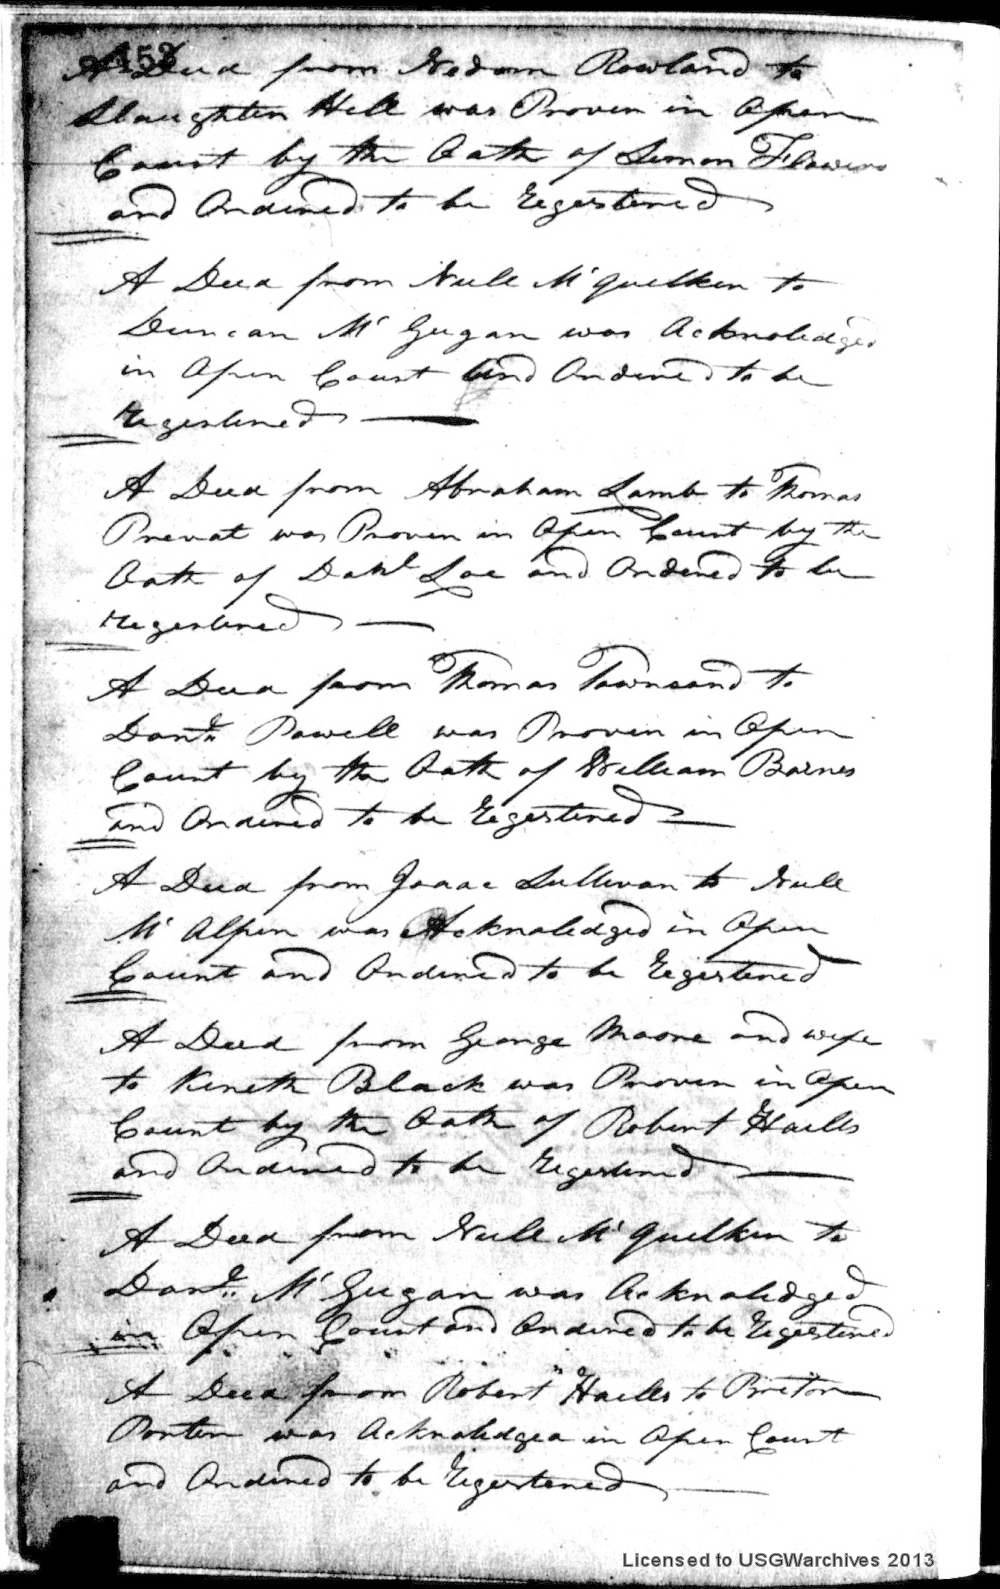 152
A Deed from Nedom Rowland to
Slaughter Hill was Proven in Open
Court by the Oath of Simon Flowers
and Ordered to be Registered
A Deed from Neill Mc quilken to
Duncan Mc Gugan was Acknoledged
in Open Court and Ordered to be
Registered
A Deed from Abraham Lamb to Thomas
Prevat was Proven in Open Court by the
Oath of Danl Lee and Ordered to be
Registered
A Deed from Thomas Townsand to
Danl. Powell was Proven in Open
Court by the Oath of William Barnes
and Ordered to be Registered
A Deed from Isaac Sullivan to Neill
Mc Alpin was Acknoledged in Open
Court and Ordered to be Registered
A Deed from George Moore and wife
to Keneth Black was Proven in Open
Court by the Oath of Robert Hails
and Ordered to be Registered
A Deed from Neill Mc quilken to
Danl. Mc Gugan was Acknoledged
in Open Court and Ordered to be Registered
A Deed from Robert Hails to Briton
Porter was Acknoledged in Open Court
and Ordered to be Registered
Licensed to USGWarchives 2013